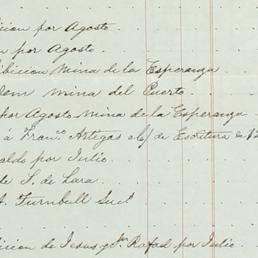 icion por Agosto
n por Agosto.
ibicion Mina de la Esperanza
Idem Mina del Puerto.
por Agosto Mina de la Esperanza
á Franco Artigas Escritura
aldo por Julio
de S. de Lara
A. Turnbull Suct
icion de Jesus y Rafael por Julio.